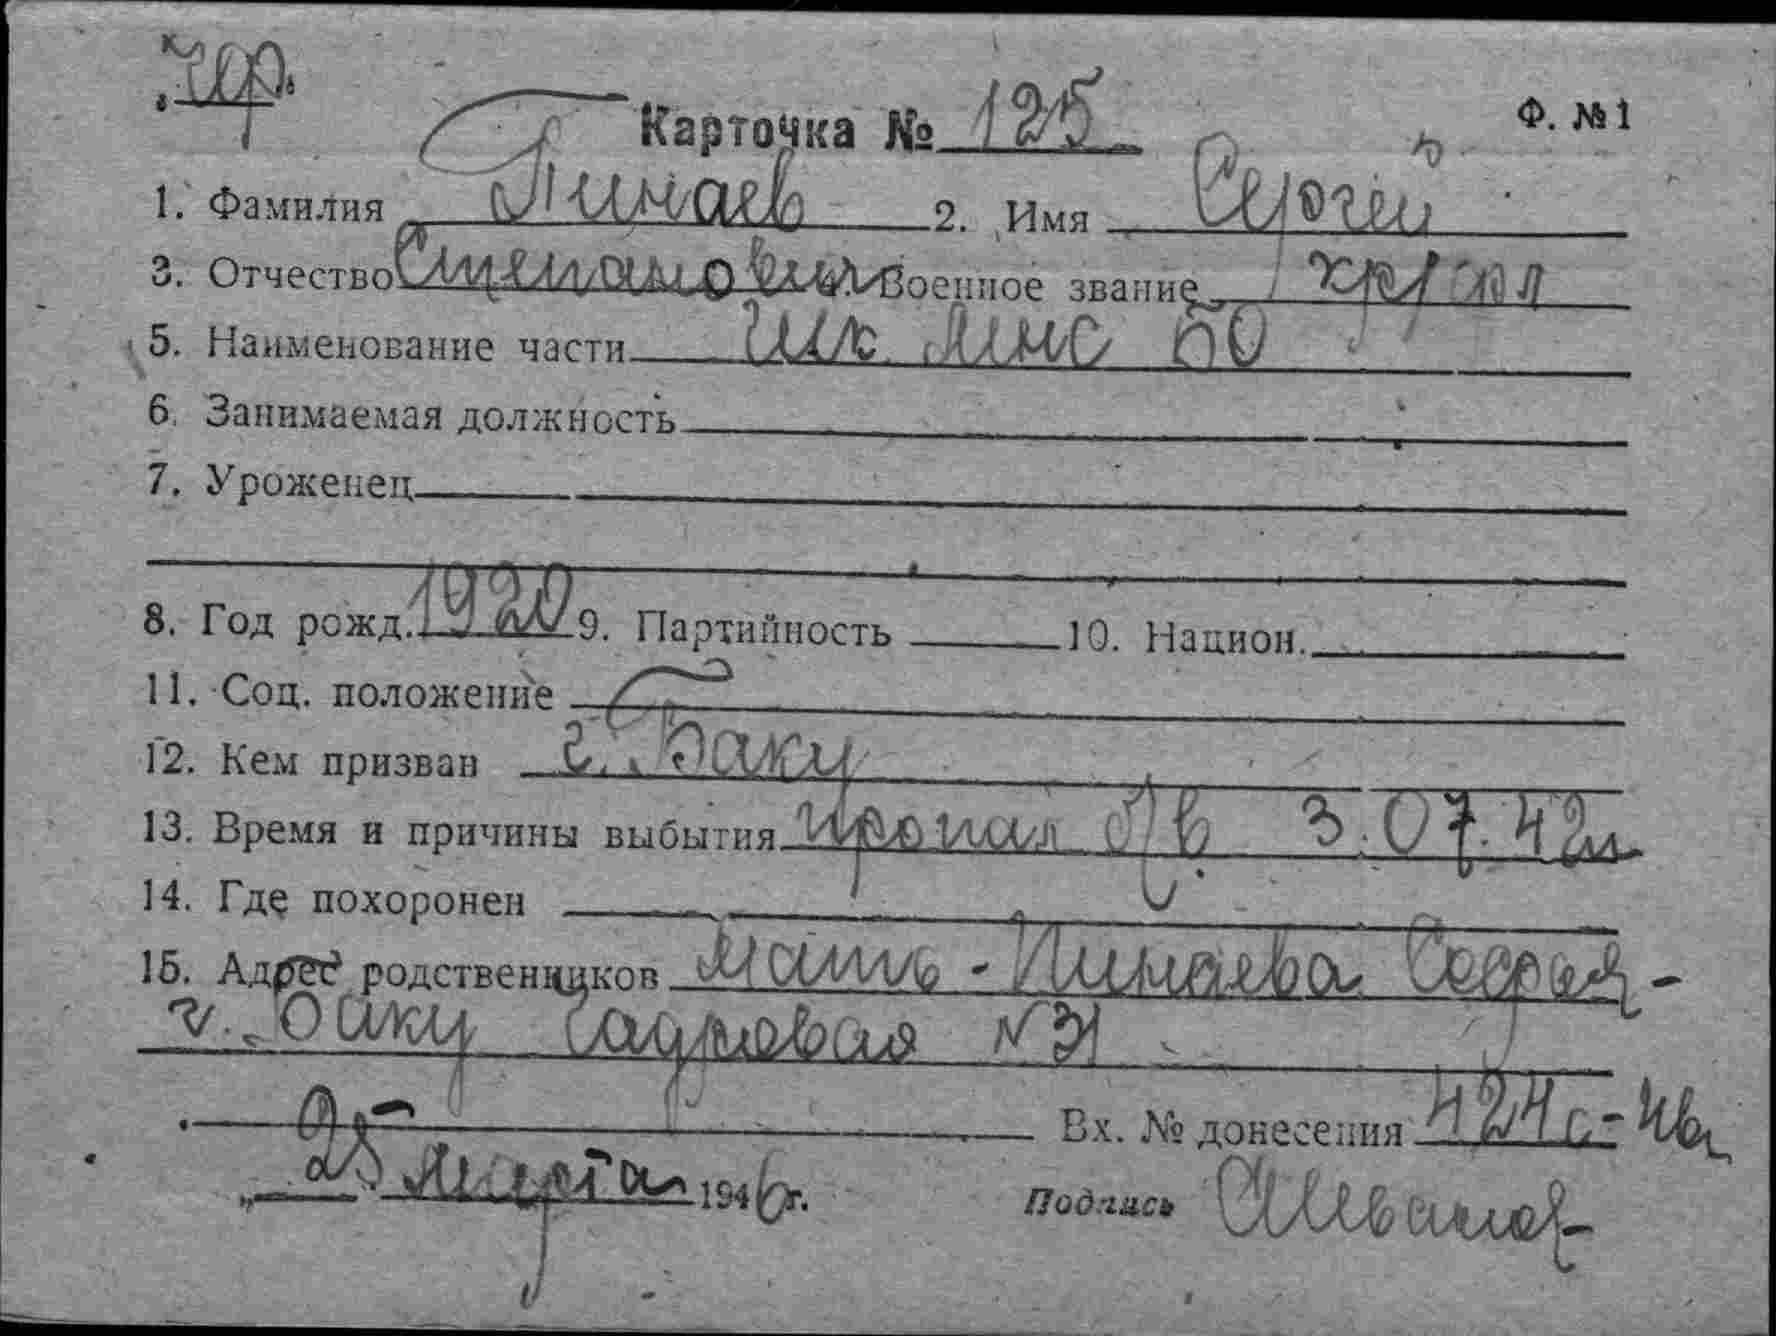 Карточка № 125 Ф. №1
1. Фамилия Минаев 2. Имя Сергей
3. Отчество Степанович Военное звание
5. Наименование части
6. Занимаемая должность
7. Уроженец
8. Год рожд. 1920 9. Партийность 10. Национ.
11. Соц. положение
12. Кем призван г. Баку
13. Время и причины выбытия пропал б/в 3.07.42г.
14. Где похоронен
15. Адрес родственников Мать -
г. Баку №31
Вх. № донесения 4241с-46г
„25 Марта 1946г. Подпись